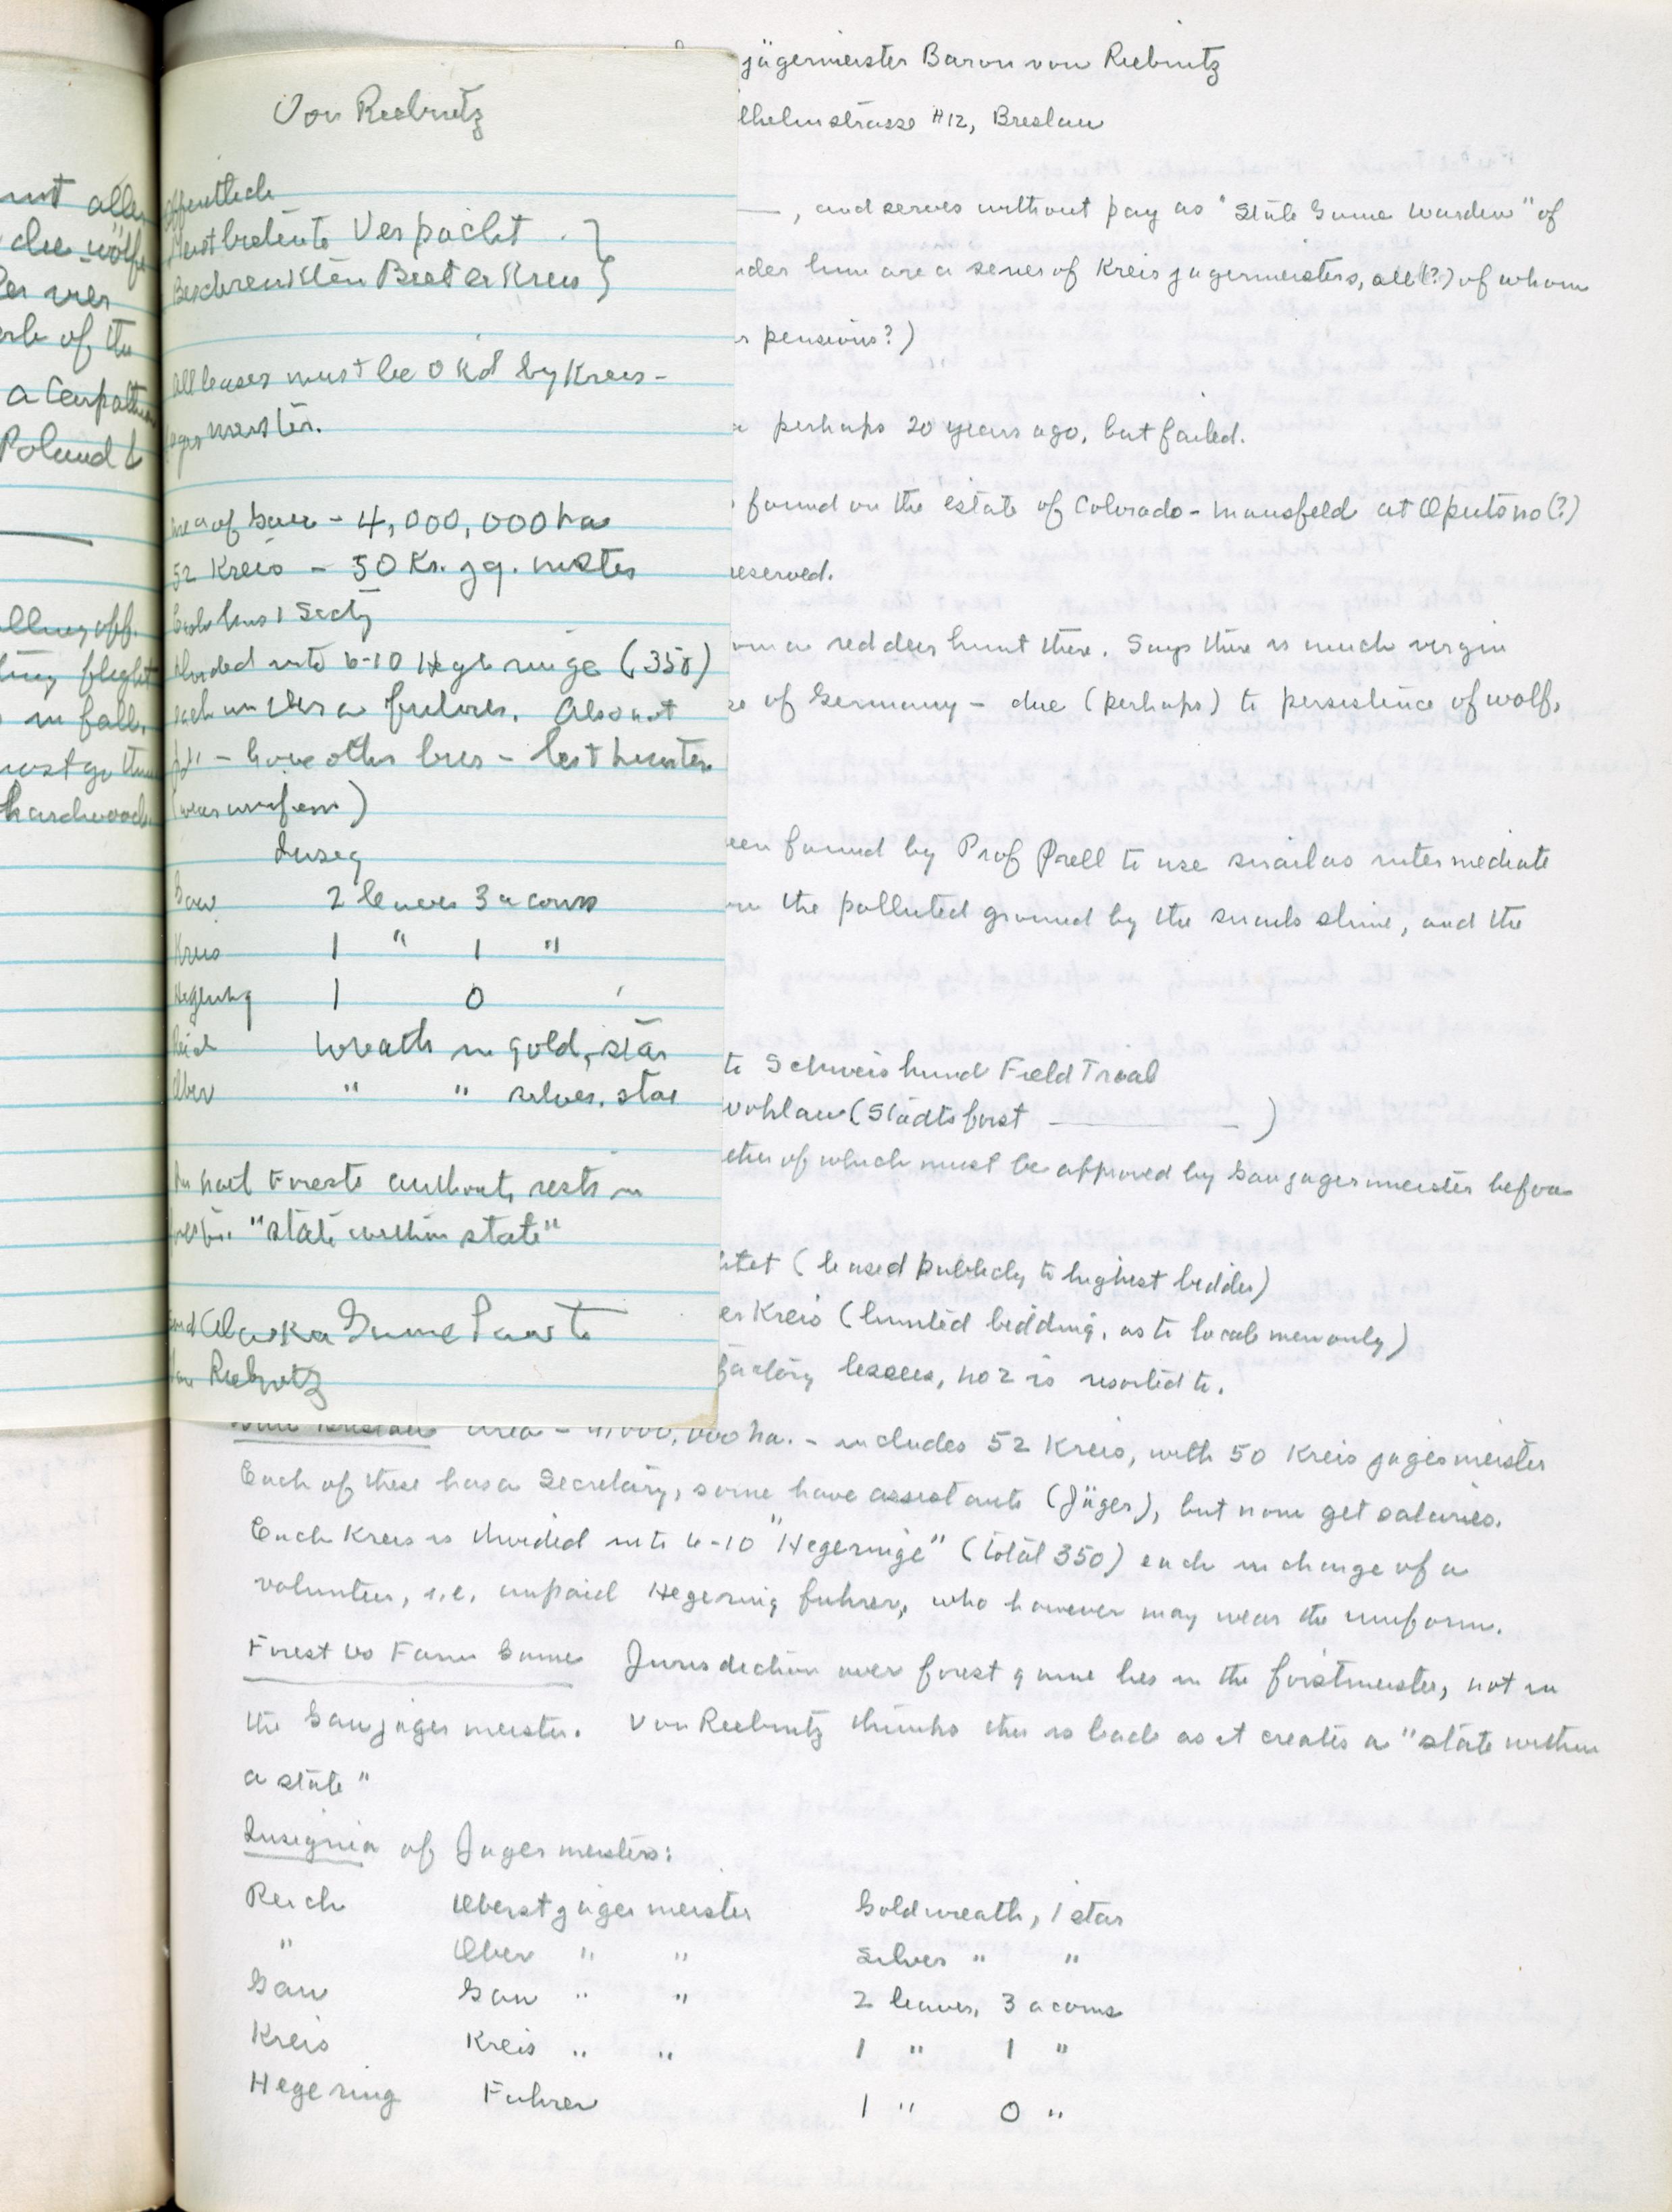 nst alle
die wölfe
er ver
of the
a Carpathian
Poland &
lling off.
flight
in fall.
must go
hardwood
Von Reebnitz
ffentlich
Meistbietente Verpacht
Beschrenkten Biet er Kreis
All leases must be Okd by Kreis-
jagermeister.
Area of Gau - 4,000,000 ha
52 Kreis - 50 Kr. jg. mster
Each has 1 Secty
divided into 6-10 Hegeringe (350)
each under a fuhrer. Also not
pd - have other bus - best hunter
(wear uniform)
Insig
Gau 2 leaves 3 acorns
Kreis 1 " 1 "
Hegering 1 0 '
Reich Wreath in gold, star
Ober " " silver, star
In Forests authority rests in
"state within state"
Send Alaska Game
Von Reebnitz
jägermeister Baron von Reebnitz
lhelmstrasse #12, Breslau
, and serves without pay as "State Game Warden" of
nder him are a series of Kreisjagermeisters, all(?) of whom
r pensions?)
perhaps 20 years ago, but failed.
found on the estate of Colorado-Mansfeld at Oputsno(?)
reserved.
on a red deer hunt there. Says there is much virgin
of Germany - due (perhaps) to persistence of wolf,
een found by Prof Prell to use snail as intermediate
on the polluted ground by the snails slime, and the
to Schweishund Field Trial
Wohlau (Stadtsforst ________)
of which must be approved by Gaujagermeister before
tet (leased publicly to highest bidder)
er Kreis (limited bidding, as to local men only)
factory lessees, no 2 is resorted to.
Gau Breslau area - 4,000,000 ha. - includes 52 Kreis, with 50 Kreisjagermeister
Each of these has a Secretary, some have assistants (Jäger), but none get salaries.
Each Kreis is divided into 6-10 "Hegeringe" (total 350) each in charge of a
volunteer, i.e. unpaid Hegering fuhrer, who however may wear the uniform.
Forest vs Farm Game Jurisdiction over forest game lies in the forstmeister, not in
the Gaujagermeister. Von Reebnitz thinks this is bad as it creates a "state within
a state"
Insignia of Jagermeisters:
Reich Oberstjagermeister Gold wreath, 1 star
" Ober " " Silver " "
Gau Gau " " 2 leaves, 3 acorns
Kreis Kreis " " 1 " 1 "
Hegering Fuhrer 1 " 0 "